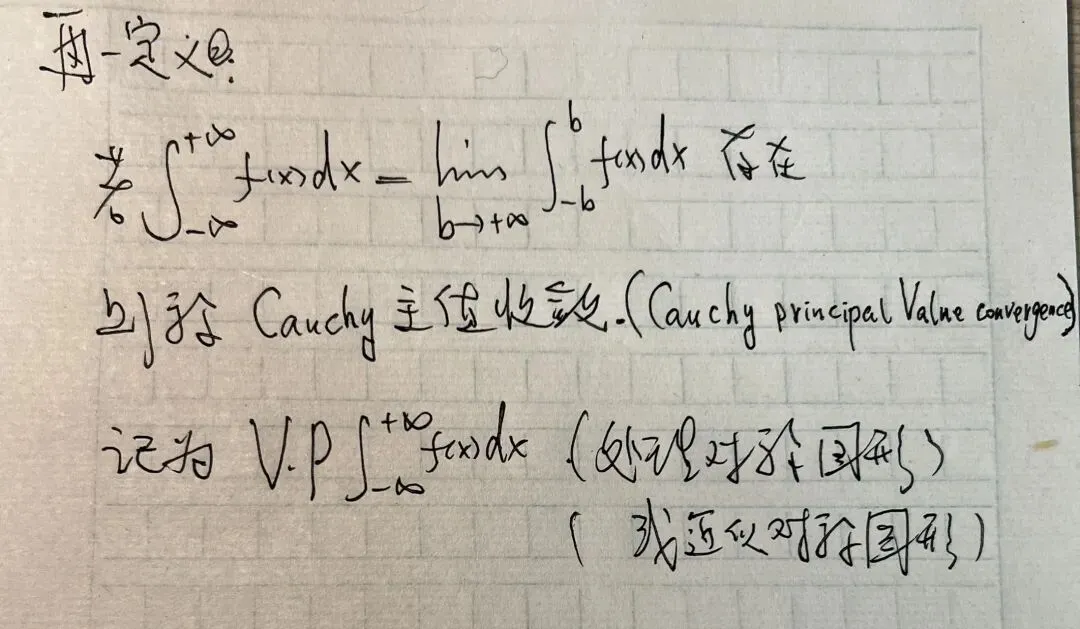 再一定义②:
若∫_{-∞}^{+∞} f(x)dx = lim_{b→+∞} ∫_{-b}^{b} f(x)dx 存在
则称 Cauchy 主值收敛.(Cauchy principal Value convergence)
记为 V.P ∫_{-∞}^{+∞} f(x)dx (处理对称图形)
(或近似对称图形)